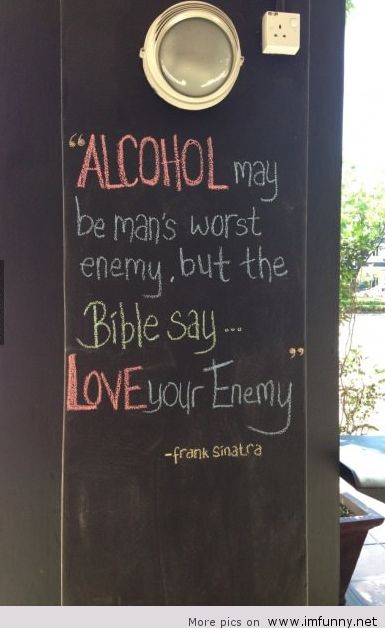 “ALCOHOL may
be man's worst
enemy, but the
Bible say...
LOVE your Enemy”
-frank Sinatra
More pics on www.imfunny.net